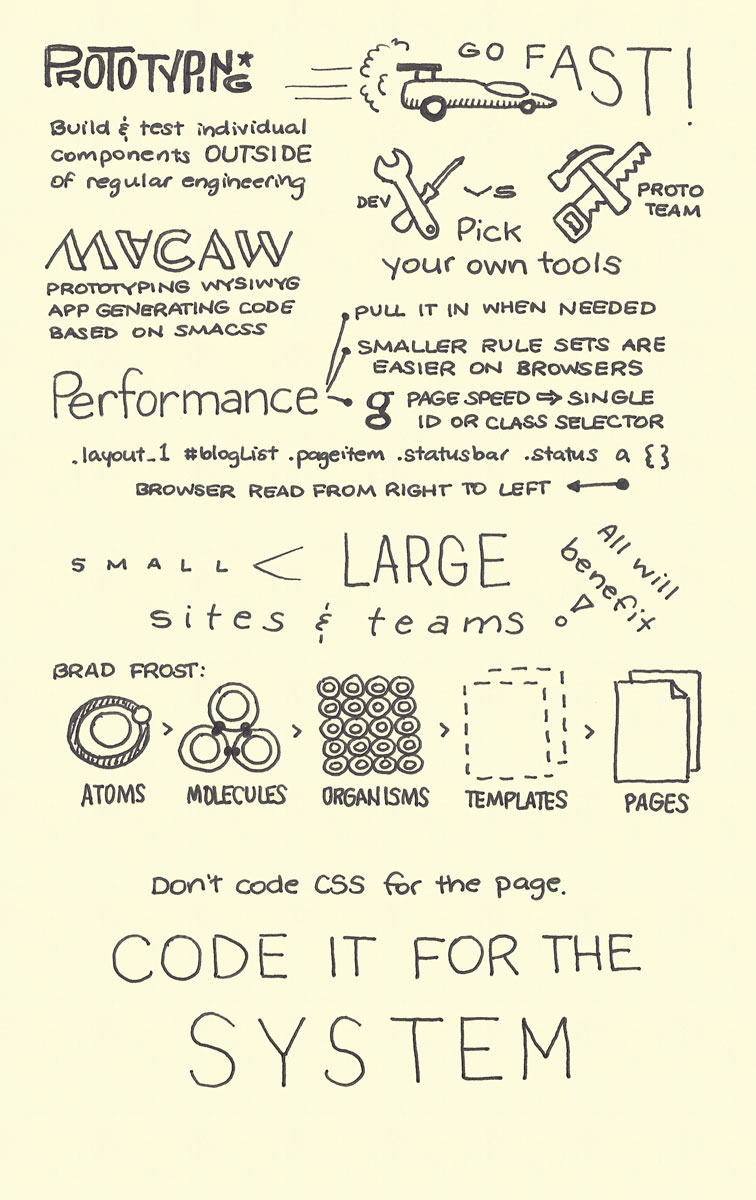 PROTOTYPING*
GO FAST!
Build & test individual
components OUTSIDE
of regular engineering
DEV vs PROTO
TEAM
Pick
your own tools
MACAW
PROTOTYPING WYSIWYG
APP GENERATING CODE
BASED ON SMACSS
Performance
PULL IT IN WHEN NEEDED
SMALLER RULE SETS ARE
EASIER ON BROWSERS
g PAGE SPEED ⇨ SINGLE
ID OR CLASS SELECTOR
.layout_1 #blogList .pageitem .statusbar .status a {}
BROWSER READ FROM RIGHT TO LEFT
SMALL < LARGE
sites & teams
All will
benefit
BRAD FROST:
ATOMS > MOLECULES > ORGANISMS > TEMPLATES > PAGES
Don't code CSS for the page.
CODE IT FOR THE
SYSTEM